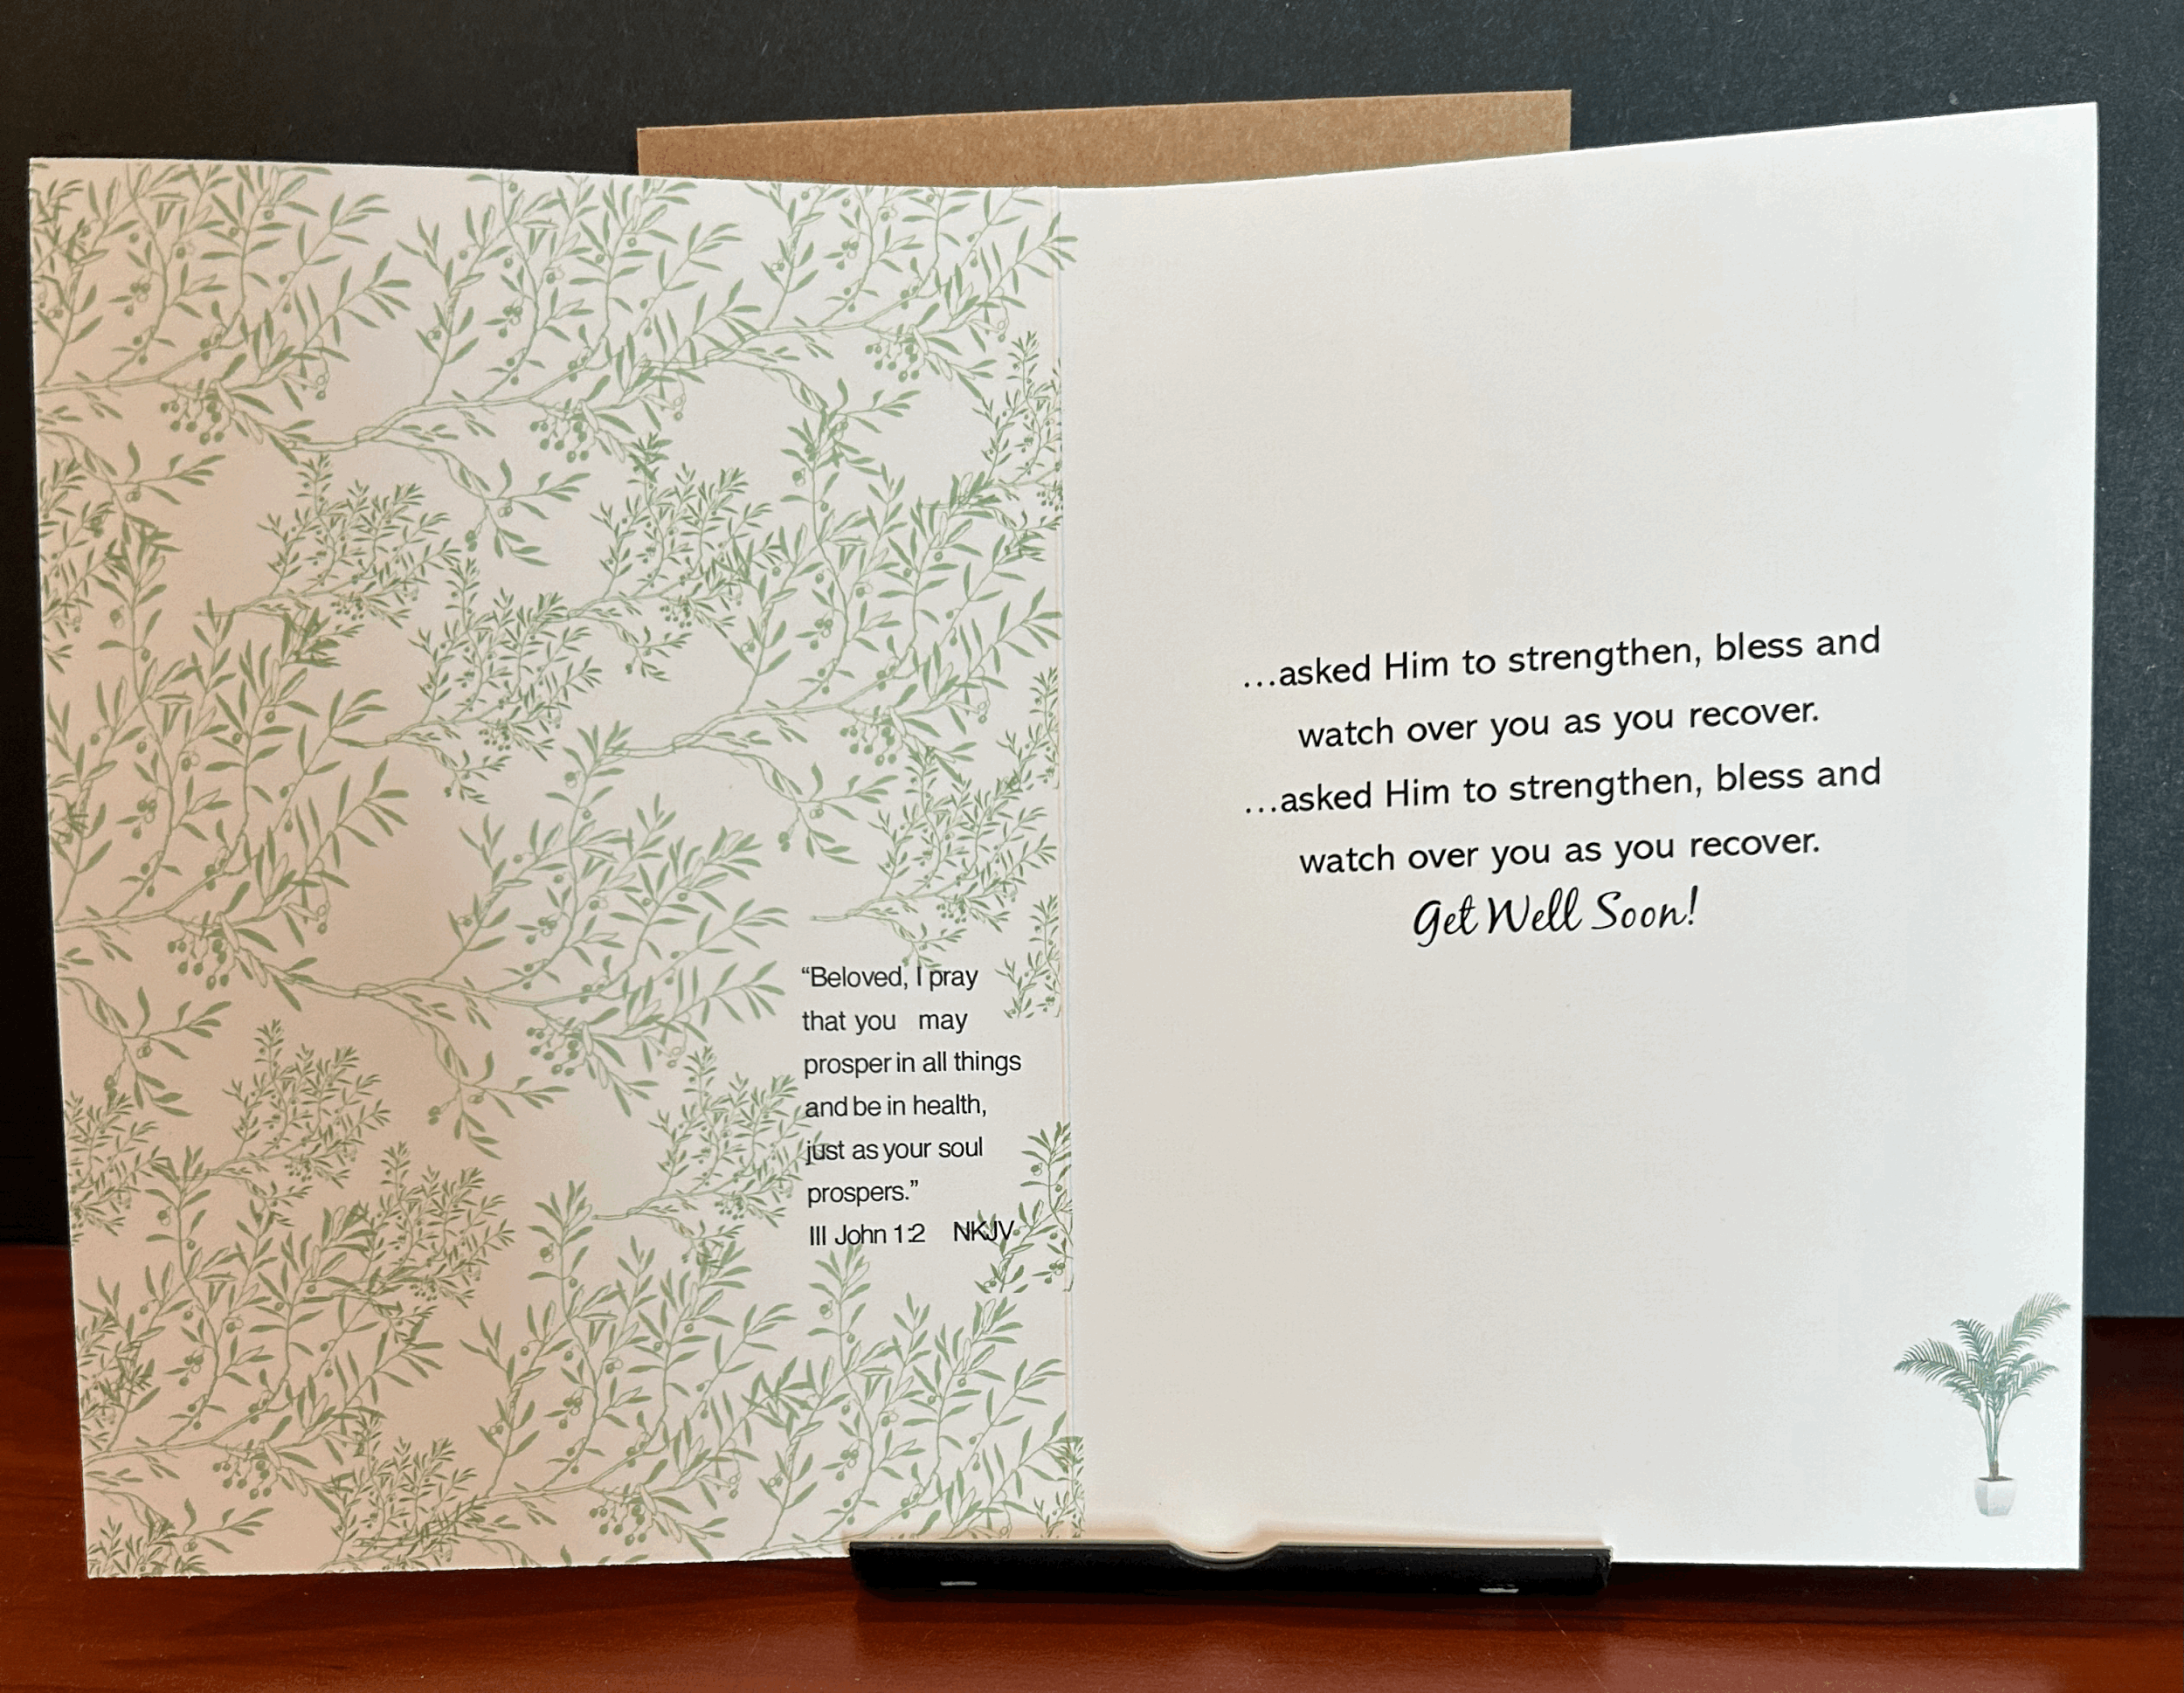 “Beloved, I pray
that you may
prosper in all things
and be in health,
just as your soul
prospers.”
III John 1:2 NKJV
...asked Him to strengthen, bless and
watch over you as you recover.
...asked Him to strengthen, bless and
watch over you as you recover.
Get Well Soon!